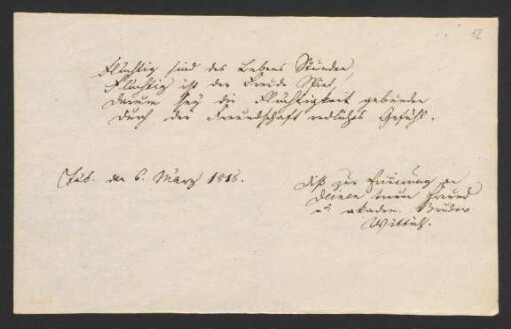 12
Flüchtig sind des Lebens Stunden,
Flüchtig ist der Freude Spiel,
Darum sey die Flüchtigkeit gebunden
Durch der Freundschaft redliches Gefühl.
Tüb. den 6. März 1818.
Diß zur Erinnerung an
Deinen treuen Freund
u. akadem. Bruder
Wittich.